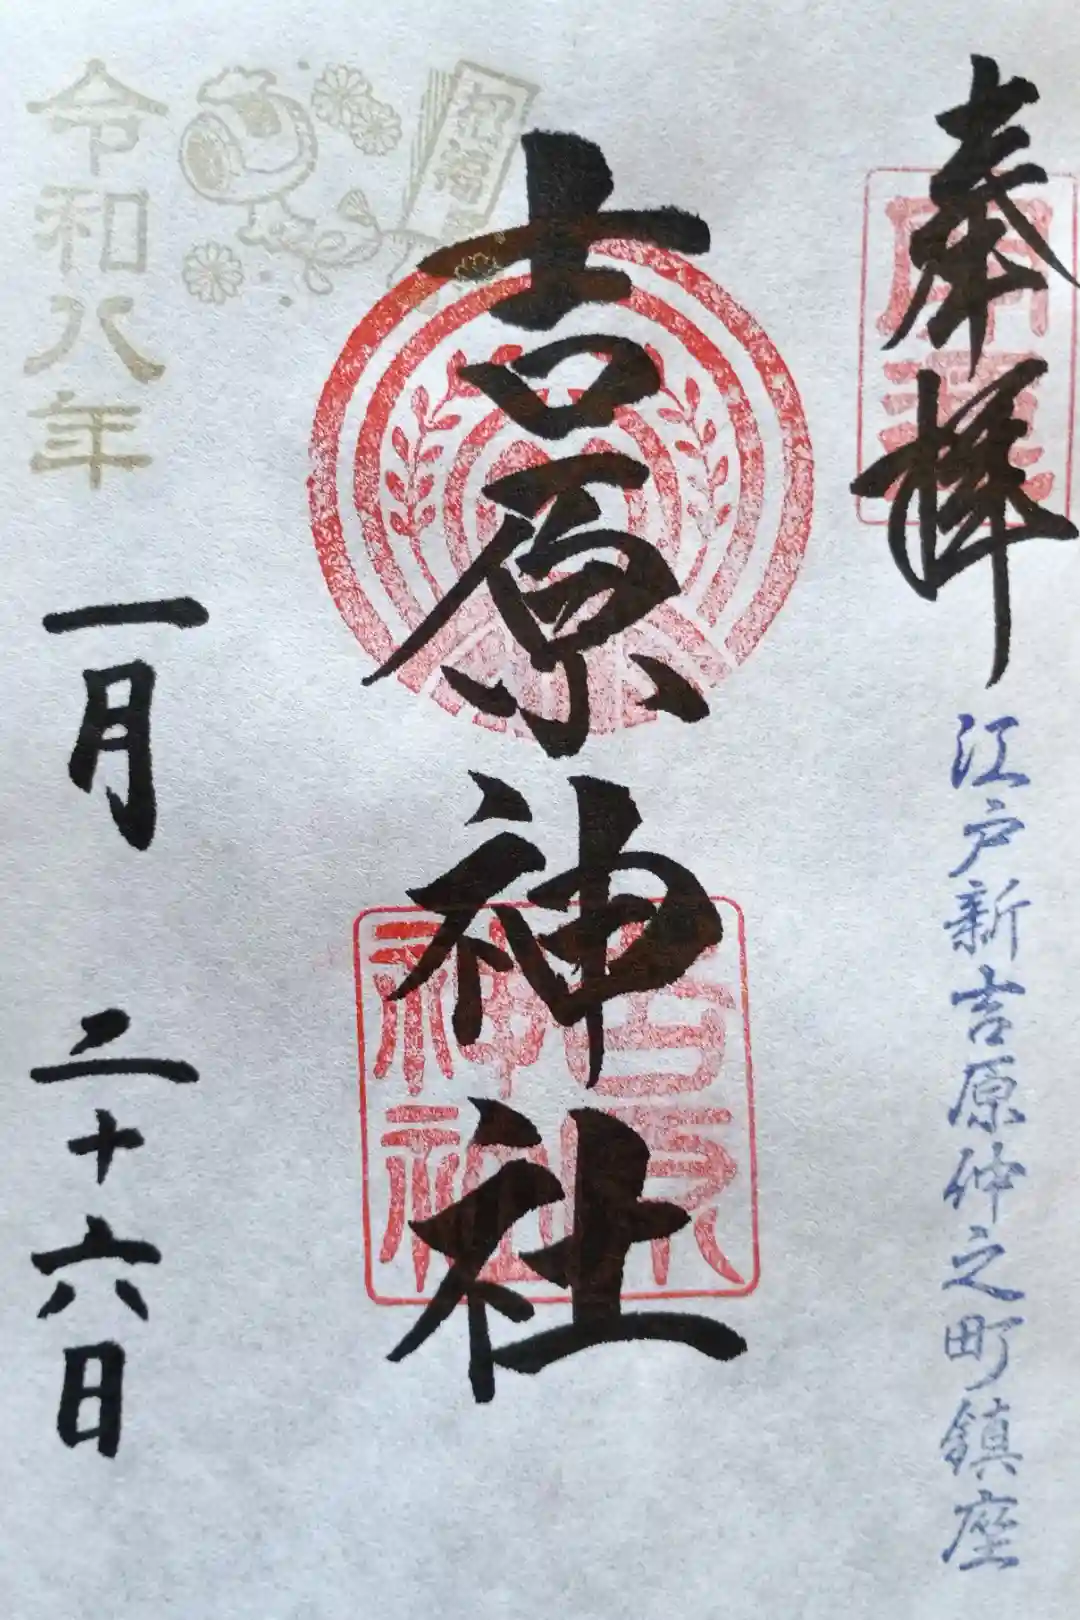 奉拜
開運
江戸新吉原仲之町鎮座
吉原神社
吉原
神社
招福
令和八年
一月二十六日